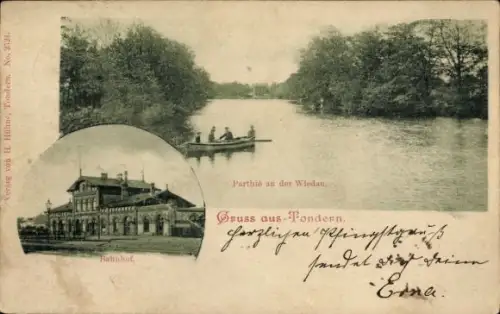 Verlag von H. Hühne, Tondern. No.
Parthie an der Wiedau.
Gruss aus Tondern.
Bahnhof.
Herzlichen Pfingstgruß
sendet Dir deine
Erna.